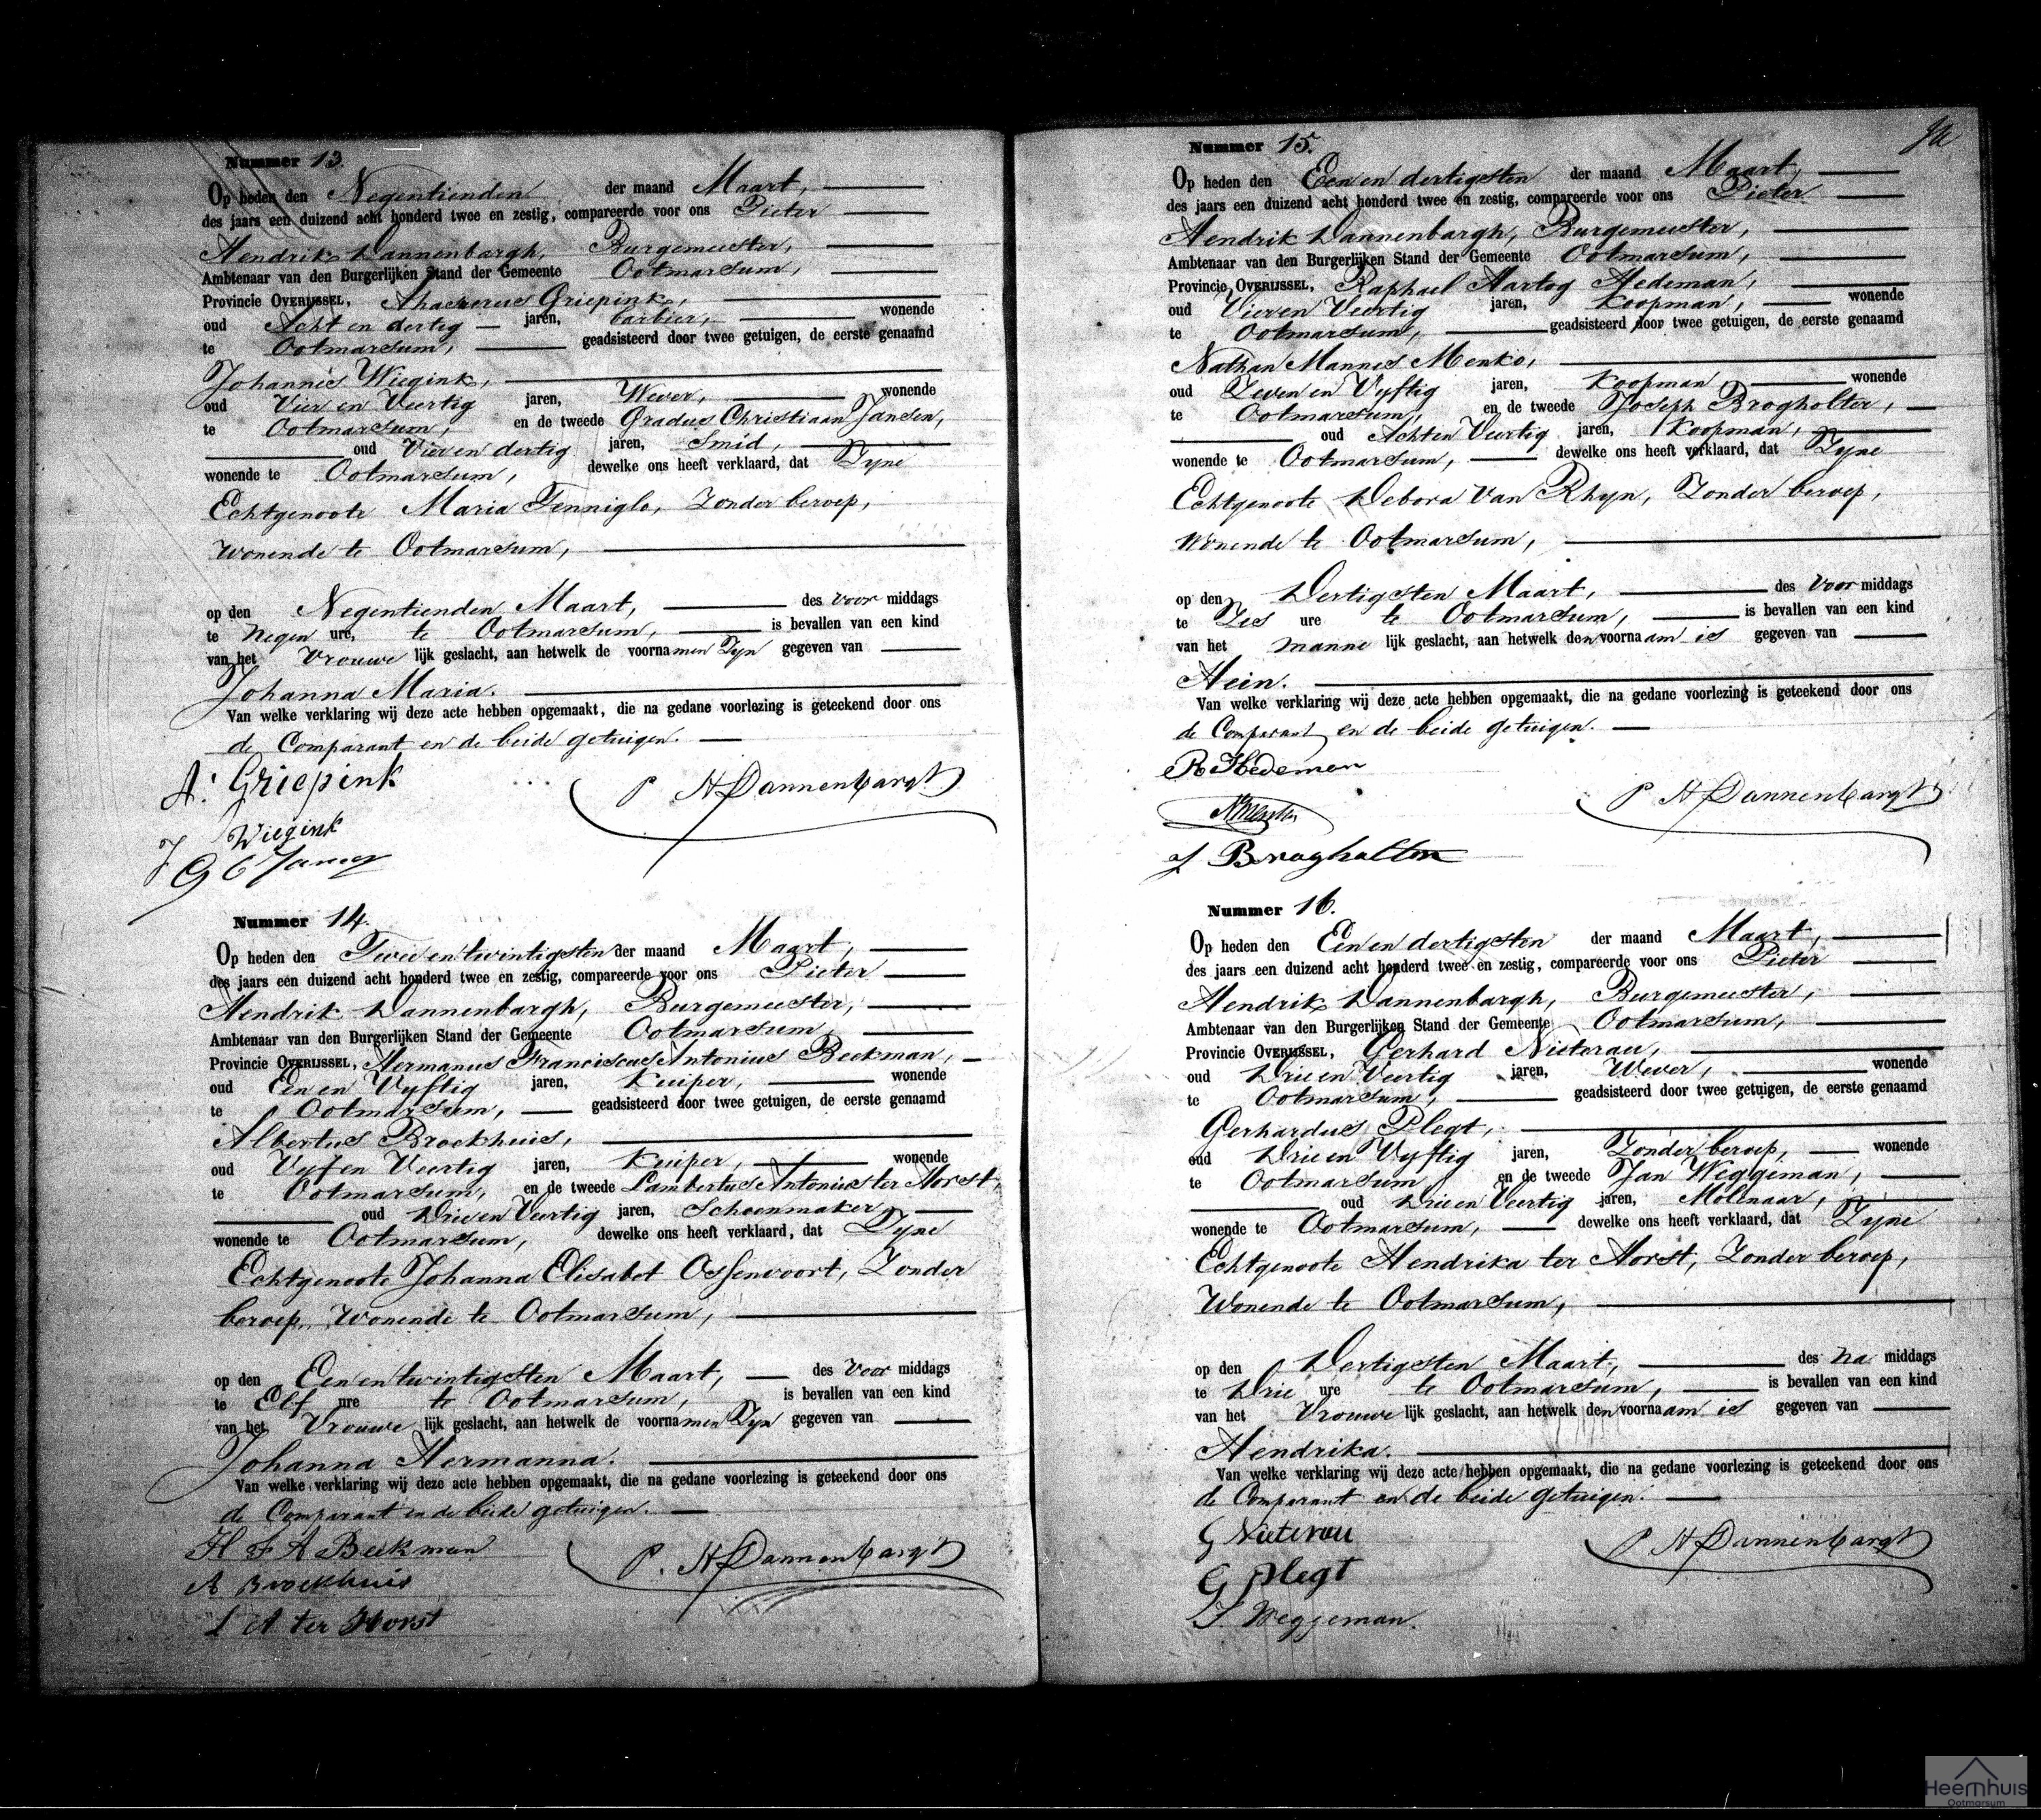 Nummer 13.
Op heden den Negentienden der maand Maart,
des jaars een duizend acht honderd twee en zestig, compareerde voor ons Pieter
Hendrik Dannenbargh, Burgemeester,
Ambtenaar van den Burgerlijken Stand der Gemeente Ootmarsum,
Provincie OVERIJSSEL, Ahasverus Griepink,
oud Acht en dertig jaren, barbier, wonende
te Ootmarsum, geadsisteerd door twee getuigen, de eerste genaamd
Johannes Wiegink,
oud Vier en Veertig jaren, Wever, wonende
te Ootmarsum, en de tweede Gradus Christiaan Jansen,
oud Vier en dertig jaren, Smid,
wonende te Ootmarsum, dewelke ons heeft verklaard, dat Zyne
Echtgenoote Maria Tenniglo, Zonder beroep,
Wonende te Ootmarsum,
op den Negentienden Maart, des Voor middags
te Negen ure, te Ootmarsum, is bevallen van een kind
van het Vrouwe lijk geslacht, aan hetwelk de voornamen Zyn gegeven van
Johanna Maria.
Van welke verklaring wij deze acte hebben opgemaakt, die na gedane voorlezing is geteekend door ons
de Comparant en de beide getuigen.
A. Griepink
P H Dannenbargh
J Wiegink
G C Jansen
Nummer 14.
Op heden den Twee en twintigsten der maand Maart,
des jaars een duizend acht honderd twee en zestig, compareerde voor ons Pieter
Hendrik Dannenbargh, Burgemeester,
Ambtenaar van den Burgerlijken Stand der Gemeente Ootmarsum,
Provincie OVERIJSSEL, Hermanus Franciscus Antonius Beekman,
oud Een en Vyftig jaren, Kuiper, wonende
te Ootmarsum, geadsisteerd door twee getuigen, de eerste genaamd
Albertus Broekhuis,
oud Vyf en Veertig jaren, Kuiper, wonende
te Ootmarsum, en de tweede Lambertus Antonius ter Horst,
oud Drie en Veertig jaren, Schoenmaker,
wonende te Ootmarsum, dewelke ons heeft verklaard, dat Zyne
Echtgenoote Johanna Elisabet Ossenvoort, Zonder
beroep, Wonende te Ootmarsum,
op den Een en twintigsten Maart, des Voor middags
te Elf ure te Ootmarsum, is bevallen van een kind
van het Vrouwe lijk geslacht, aan hetwelk de voornamen Zyn gegeven van
Johanna Hermanna.
Van welke verklaring wij deze acte hebben opgemaakt, die na gedane voorlezing is geteekend door ons
de Comparant en de beide getuigen.
H F A Beekman
P. H Dannenbargh
A Broekhuis
L A ter Horst
Nummer 15.
Op heden den Een en dertigsten der maand Maart,
des jaars een duizend acht honderd twee en zestig, compareerde voor ons Pieter
Hendrik Dannenbargh, Burgemeester,
Ambtenaar van den Burgerlijken Stand der Gemeente Ootmarsum,
Provincie OVERIJSSEL, Raphael Hartog Hedeman,
oud Vier en Veertig jaren, Koopman, wonende
te Ootmarsum, geadsisteerd door twee getuigen, de eerste genaamd
Nathan Mannes Menko,
oud Zeven en Vyftig jaren, Koopman wonende
te Ootmarsum, en de tweede Joseph Brogholter,
oud Acht en Veertig jaren, Koopman,
wonende te Ootmarsum, dewelke ons heeft verklaard, dat Zyne
Echtgenoote Debora Van Rhyn, Zonder beroep,
Wonende te Ootmarsum,
op den Dertigsten Maart, des Voor middags
te Zes ure te Ootmarsum, is bevallen van een kind
van het Manne lijk geslacht, aan hetwelk den voornaam is gegeven van
Hein.
Van welke verklaring wij deze acte hebben opgemaakt, die na gedane voorlezing is geteekend door ons
de Comparant en de beide getuigen.
R Hedeman
P H Dannenbargh
NMenko
J Brogholter
Nummer 16.
Op heden den Een en dertigsten der maand Maart,
des jaars een duizend acht honderd twee en zestig, compareerde voor ons Pieter
Hendrik Dannenbargh, Burgemeester,
Ambtenaar van den Burgerlijken Stand der Gemeente Ootmarsum,
Provincie OVERIJSSEL, Gerhard Nieterau,
oud Drie en Veertig jaren, Wever, wonende
te Ootmarsum, geadsisteerd door twee getuigen, de eerste genaamd
Gerhardus Plegt,
oud Drie en Vyftig jaren, Zonder beroep, wonende
te Ootmarsum, en de tweede Jan Weggeman,
oud Drie en Veertig jaren, Molenaar,
wonende te Ootmarsum, dewelke ons heeft verklaard, dat Zyne
Echtgenoote Hendrika ter Horst, Zonder beroep,
Wonende te Ootmarsum,
op den Dertigsten Maart, des Na middags
te Drie ure te Ootmarsum, is bevallen van een kind
van het Vrouwe lijk geslacht, aan hetwelk den voornaam is gegeven van
Hendrika.
Van welke verklaring wij deze acte hebben opgemaakt, die na gedane voorlezing is geteekend door ons
de Comparant en de beide getuigen.
G Nieterau
P H Dannenbargh
G Plegt
J. Weggeman.
Heemhuis
Ootmarsum